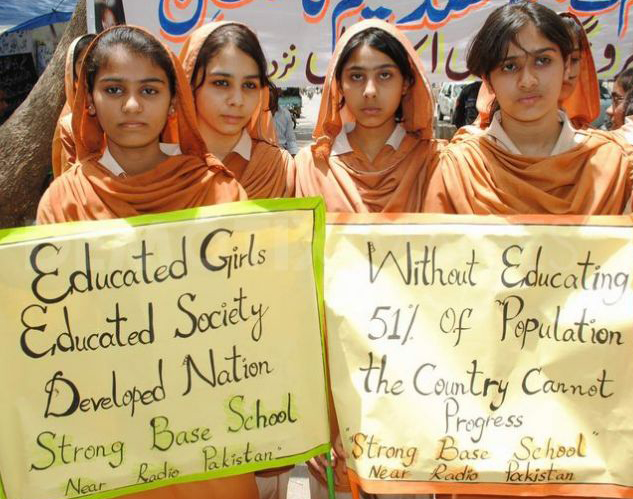 Educated Girls
Educated Society
Developed Nation
Strong Base School
Near Radio Pakistan
Without Educating
51% Of Population
the Country Cannot
Progress
"Strong Base School"
Near Radio Pakistan